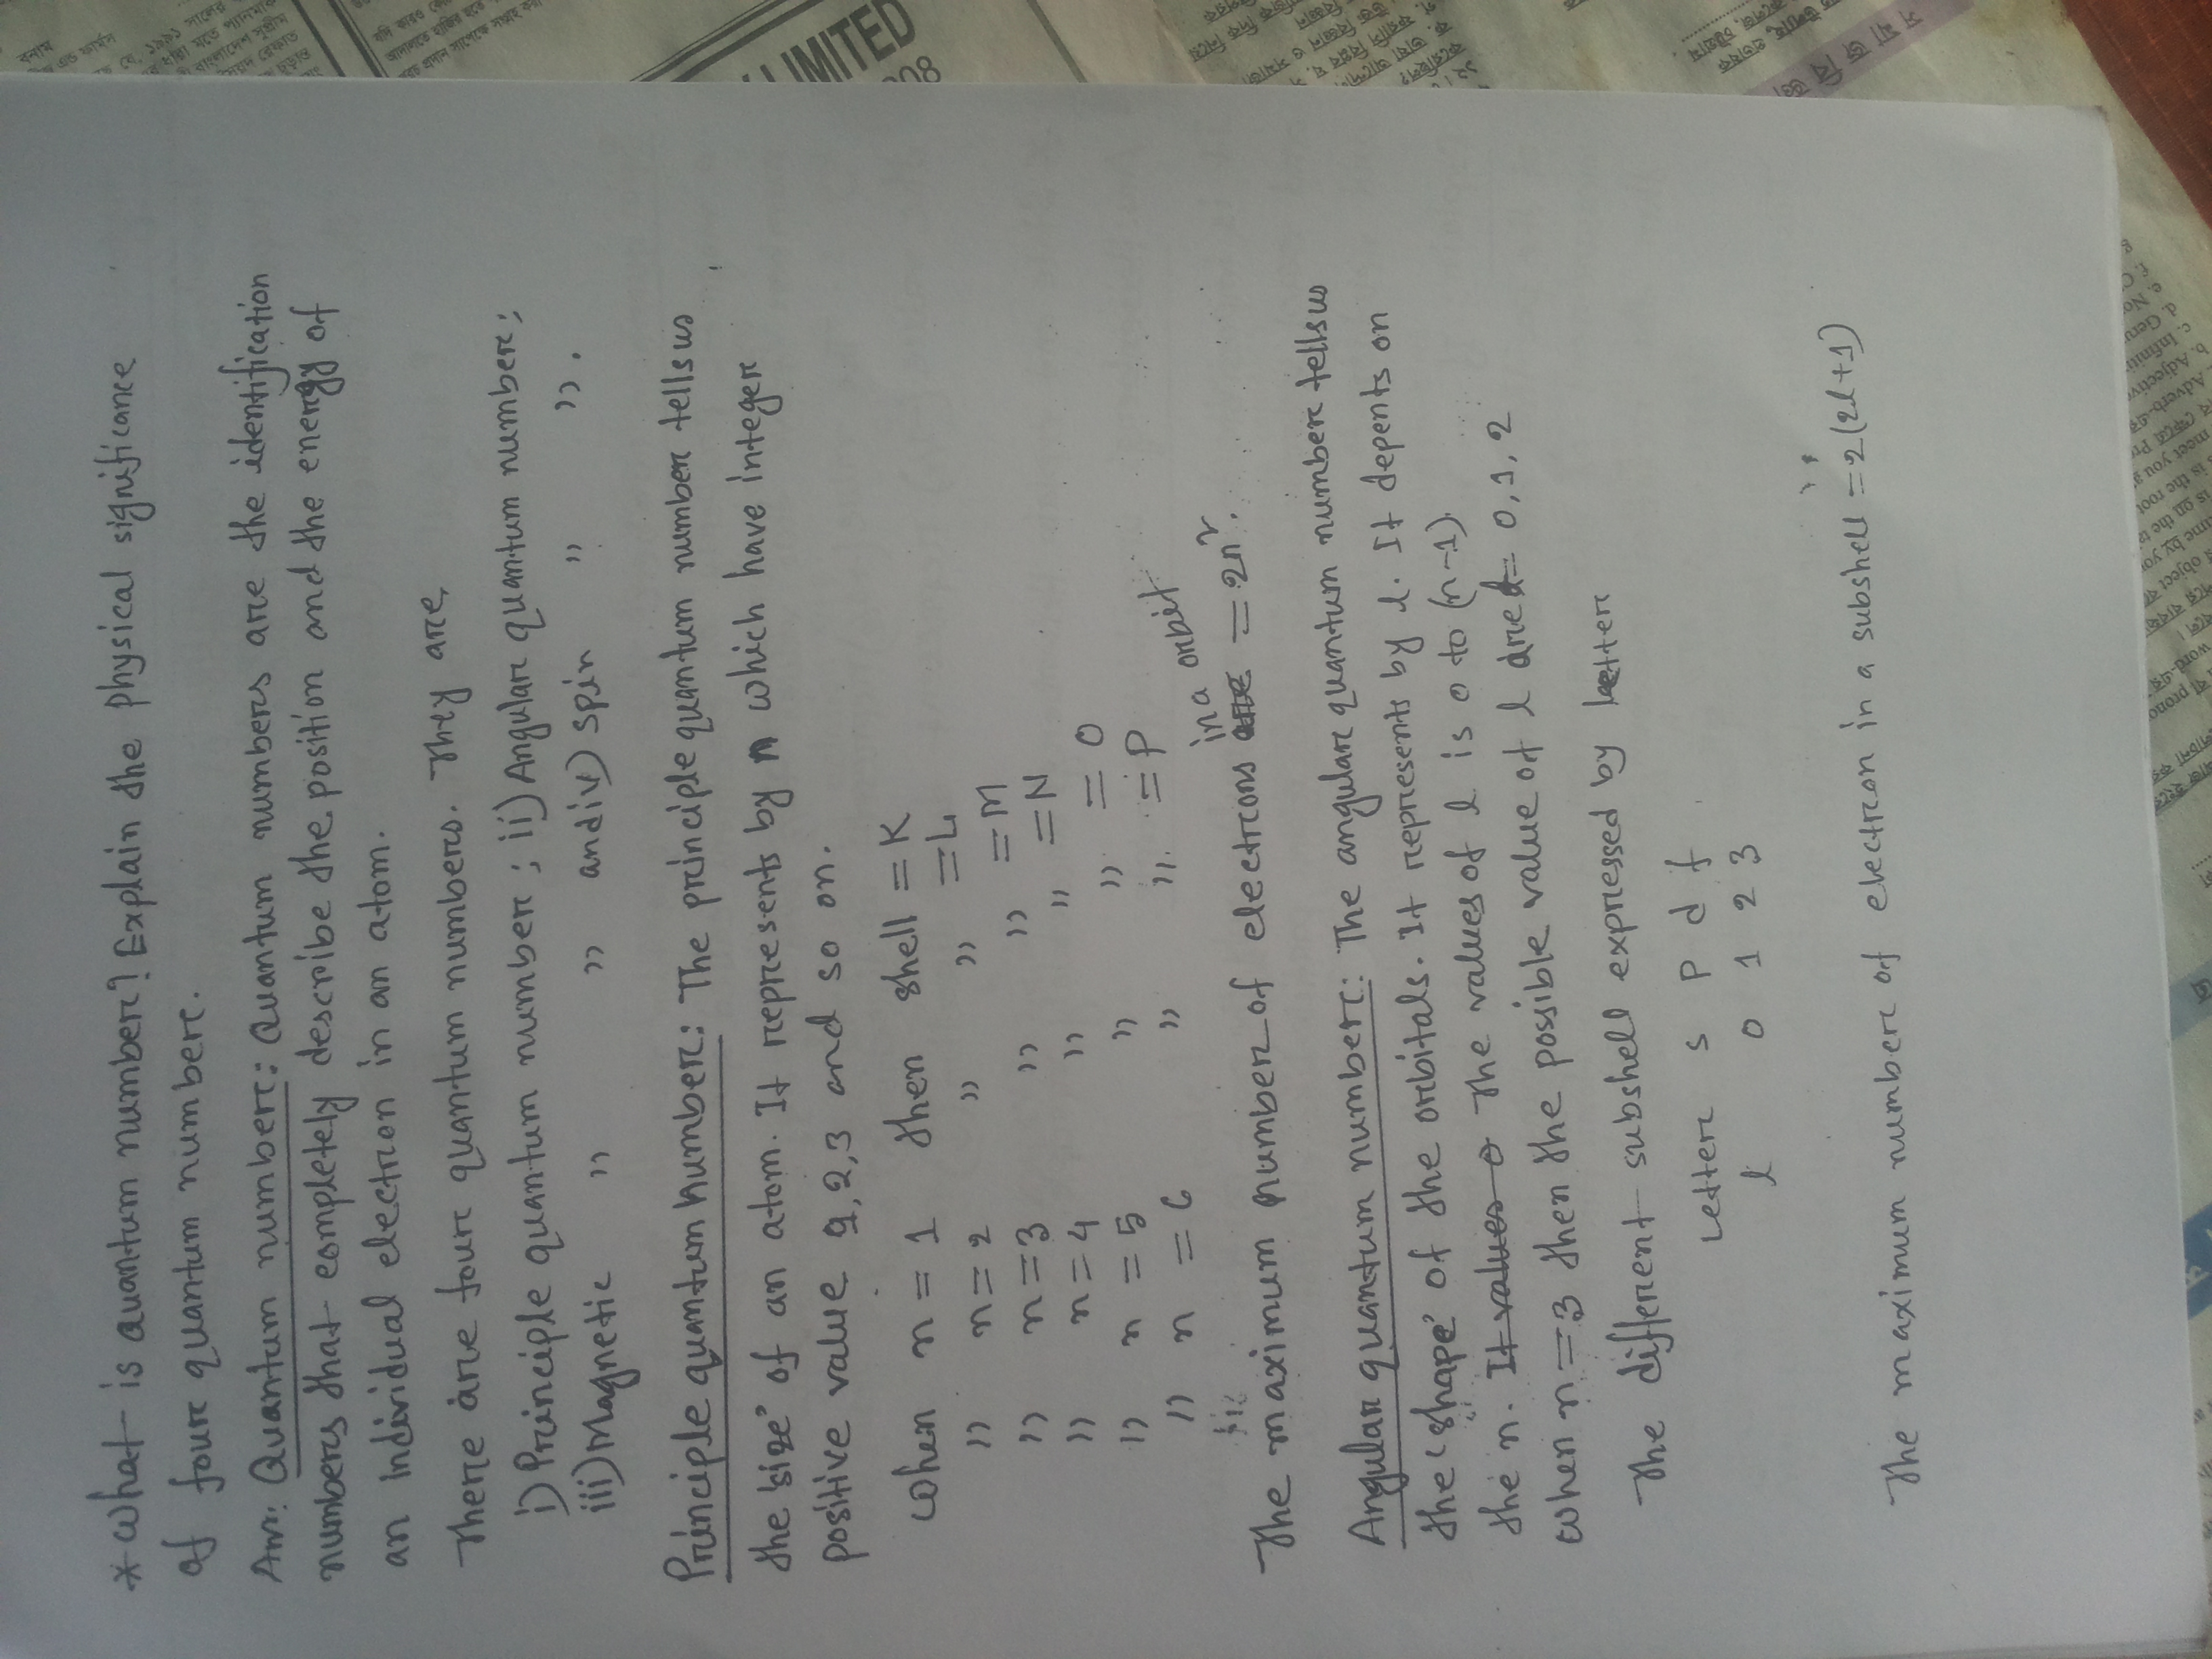 * What is quantum number? Explain the physical significance
of four quantum number.
Ans: Quantum number: Quantum numbers are the identification
numbers that completely describe the position and the energy of
an individual electron in an atom.
There are four quantum numbers. They are,
i) Principle quantum number; ii) Angular quantum number;
iii) Magnetic " " and iv) spin " ".
Principle quantum number: The principle quantum number tells us
the 'size' of an atom. It represents by n which have integer
positive value 1,2,3 and so on.
When n = 1 then shell = K
" n = 2 " " = L
" n = 3 " " = M
" n = 4 " " = N
" n = 5 " " = O
" n = 6 " " = P
in a orbit
The maximum number of electrons are = 2n².
Angular quantum number: The angular quantum number tells us
the 'shape' of the orbitals. It represents by l. It depents on
the n. It values o The values of l is 0 to (n-1).
When n = 3 then the possible value of l are l = 0, 1, 2
The different subshell expressed by letter
Letter s p d f
l 0 1 2 3
The maximum number of electron in a subshell = 2(2l+1)
LIMITED